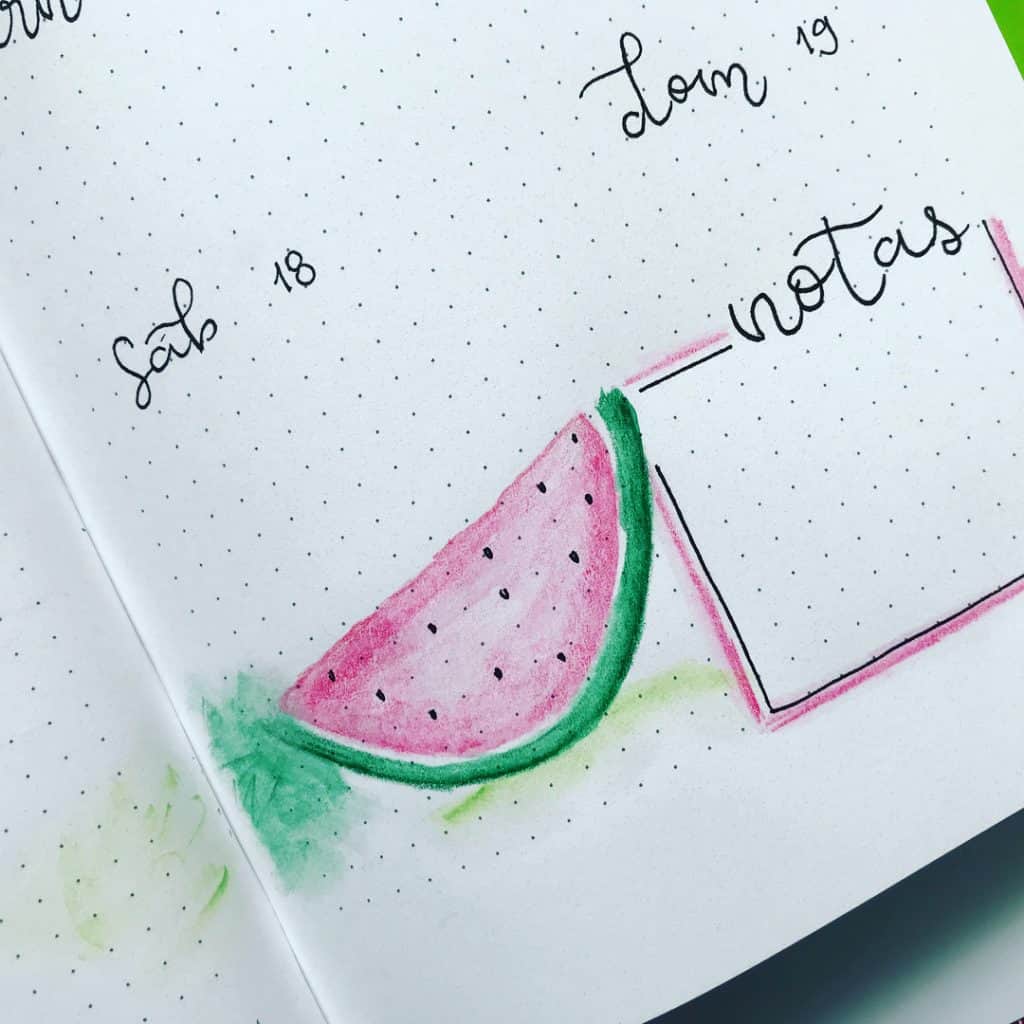 dom 19
sáb 18
notas